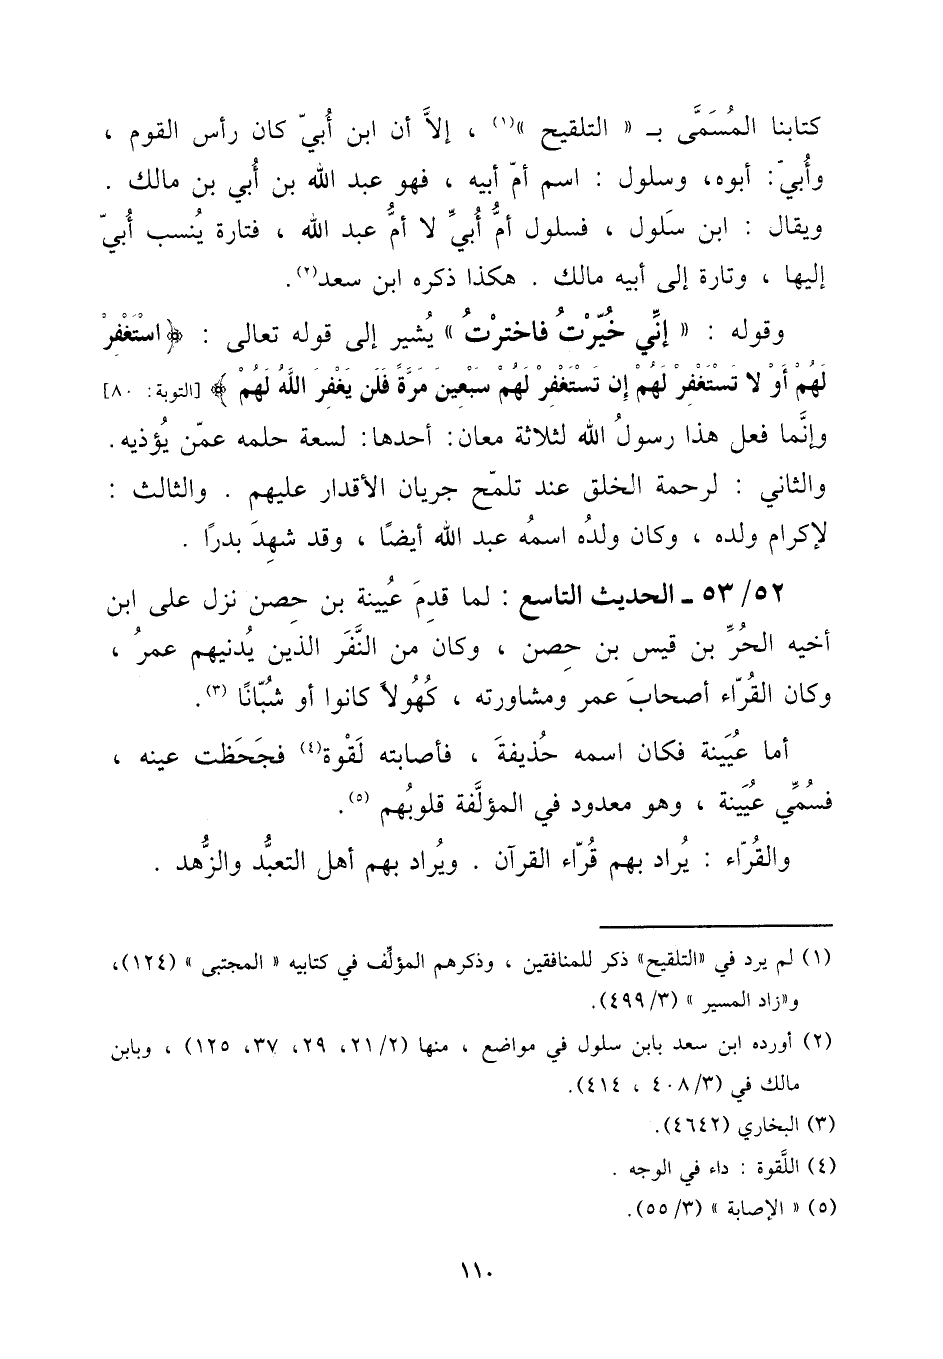 كتابنا المُسَمَّى بـ « التلقيح »(١) ، إلاَّ أن ابن أُبيّ كان رأس القوم ،
وأُبيّ: أبوه، وسلول : اسم أمّ أبيه ، فهو عبد الله بن أُبي بن مالك .
ويقال : ابن سَلول ، فسلول أمُّ أُبيٍّ لا أمُّ عبد الله ، فتارة يُنسب أُبيّ
إليها ، وتارة إلى أبيه مالك . هكذا ذكره ابن سعد(٢).
وقوله : « إنِّي خُيِّرْتُ فاخترْتُ » يُشير إلى قوله تعالى : ﴿اسْتَغْفِرْ
لَهُمْ أَوْ لا تَسْتَغْفِرْ لَهُمْ إِن تَسْتَغْفِرْ لَهُمْ سَبْعِينَ مَرَّةً فَلَن يَغْفِرَ اللَّهُ لَهُمْ ﴾ [التوبة: ٨٠]
وإنَّما فعل هذا رسولُ الله لثلاثة معان: أحدها: لسعة حلمه عمّن يُؤذيه.
والثاني : لرحمة الخلق عند تلمّح جريان الأقدار عليهم . والثالث :
لإكرام ولده ، وكان ولدُه اسمُه عبد الله أيضًا ، وقد شهِدَ بدرًا .
٥٢/ ٥٣ ـ الحديث التاسع : لما قدِمَ عُيينة بن حِصن نزل على ابن
أخيه الحُرِّ بن قيس بن حِصن ، وكان من النَّفَر الذين يُدنيهم عمرُ ،
وكان القُرّاء أصحابَ عمر ومشاورته ، كُهُولاً كانوا أو شُبّانًا (٣).
أما عُيَينة فكان اسمه حُذيفةَ ، فأصابته لَقْوة(٤) فجَحَظت عينه ،
فسُمِّي عُيَينة ، وهو معدود في المؤلَّفة قلوبُهم (٥).
والقُرّاء : يُراد بهم قُرّاء القرآن . ويُراد بهم أهل التعبُّد والزُّهد .
(١) لم يرد في «التلقيح» ذكر للمنافقين ، وذكرهم المؤلِّف في كتابيه « المجتبى » (١٢٤)،
و«زاد المسير » (٣/ ٤٩٩).
(٢) أورده ابن سعد بابن سلول في مواضع ، منها (٢/ ٢١، ٢٩، ٣٧، ١٢٥) ، وبابن
مالك في (٣/ ٤٠٨ ، ٤١٤).
(٣) البخاري (٤٦٤٢).
(٤) اللَّقوة : داء في الوجه .
(٥) « الإصابة » (٣/ ٥٥).
١١٠